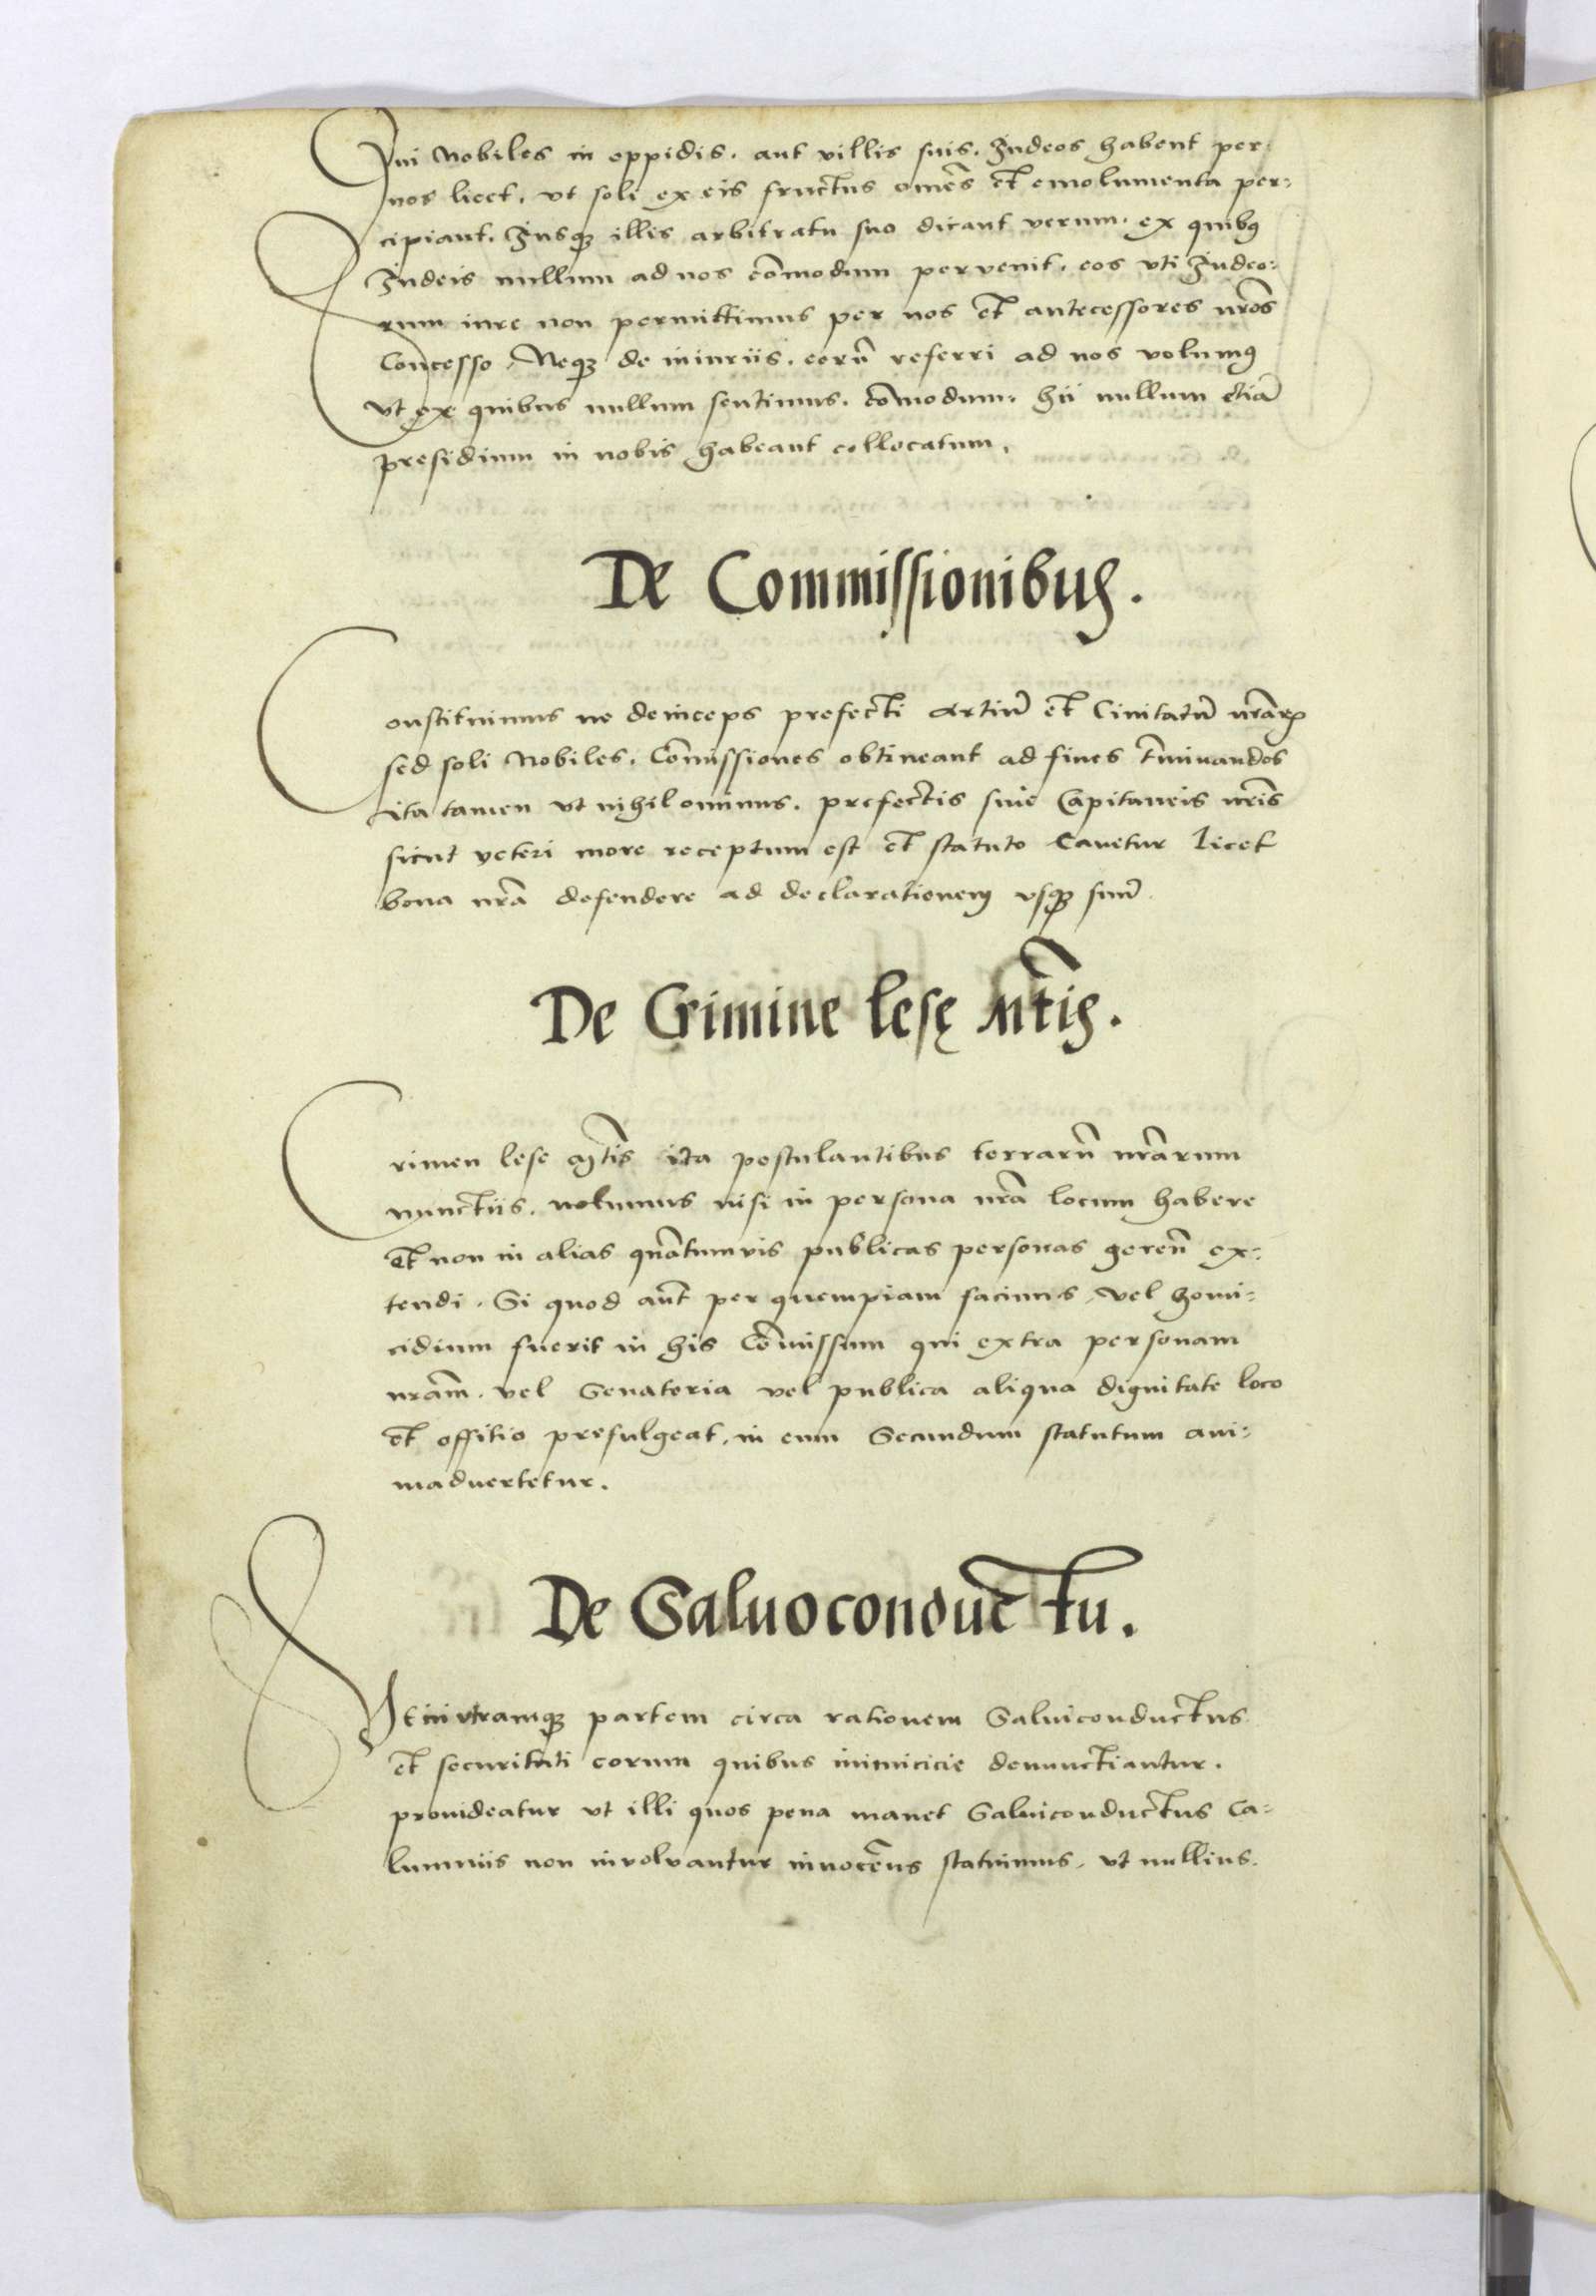 Qui Nobiles in oppidis. aut villis suis. Iudeos habent per
nos licet, vt soli ex eis fructus om̃es et emolumenta per:
cipiant. Iusq3 illis arbitratu suo dicant verum. ex quibꝰ
Iudeis nullum ad nos cõmodum pervenit. eos vti Iudeo:
rum iure non permittimus per nos et antecessores nr̃os
Concesso. Neq3 de iniuriis. eorũ referri ad nos volumꝰ
vt ex quibus nullum sentimus. cõmodum. hii nullum etiã
presidium in nobis habeant collocatum.
De Commissionibus.
Constituimus ne deinceps prefecti Artiũ et Ciuitatũ nr̃arꝝ
sed soli Nobiles. Cõmissiones obtineant ad fines t̃minandos
ita tamen vt nihilominus. prefectis siue Capitaneis nr̃is
sicut veteri more receptum est et statuto Cauetur licet
bona nr̃a defendere ad declarationem vsq3 finiũ
De Crimine lesę M̃tis.
Crimen lese M̃tis ita postulantibus terrarũ nr̃arum
nunctiis. nolumus nisi in persona nr̃a locum habere
et non in alias quãtumvis publicas personas gereñ ex:
tendi. Si quod aũt per quempiam facinus, vel homi:
cidium fuerit in his Cõmissum qui extra personam
nr̃am. vel Senatoria vel publica aliqua dignitate loco
et offitio presulgeat, in eum Secundum statutum ani:
maduertetur.
De Saluoconductu.
Vt in vtramq3 partem circa rationem Saluiconductus
et securitati eorum quibus inimicicie denunctiantur.
prouideatur vt illi quos pena manet Saluiconductus Ca:
lumniis non involvantur innocẽns statuimus, vt nullius.